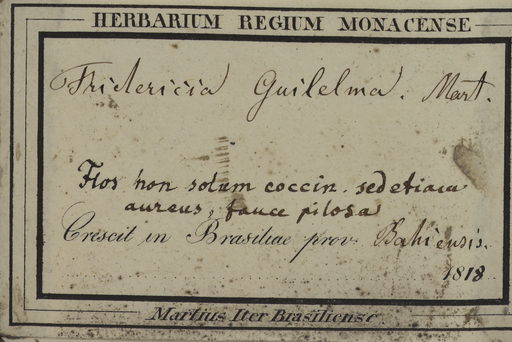 HERBARIUM REGIUM MONACENSE
Fridericia Guilelma. Mart.
Flos non solum coccin. sed etiam
aureus, fauce pilosa
Crescit in Brasiliae prov. Bahiensis.
1818
Martius Iter Brasiliense